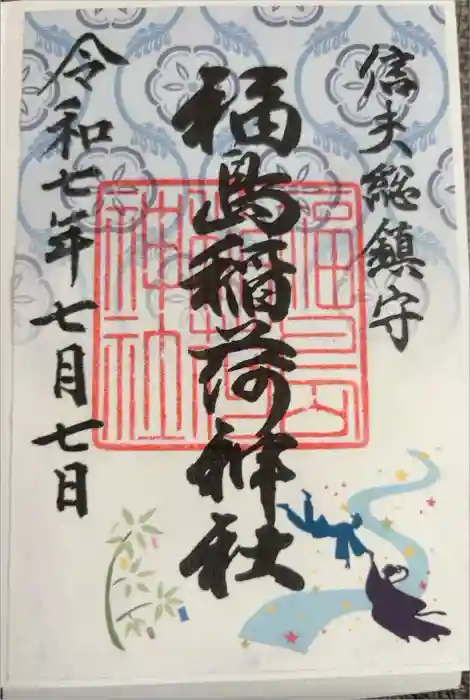 信夫総鎮守
福島稲荷神社
令和七年七月七日